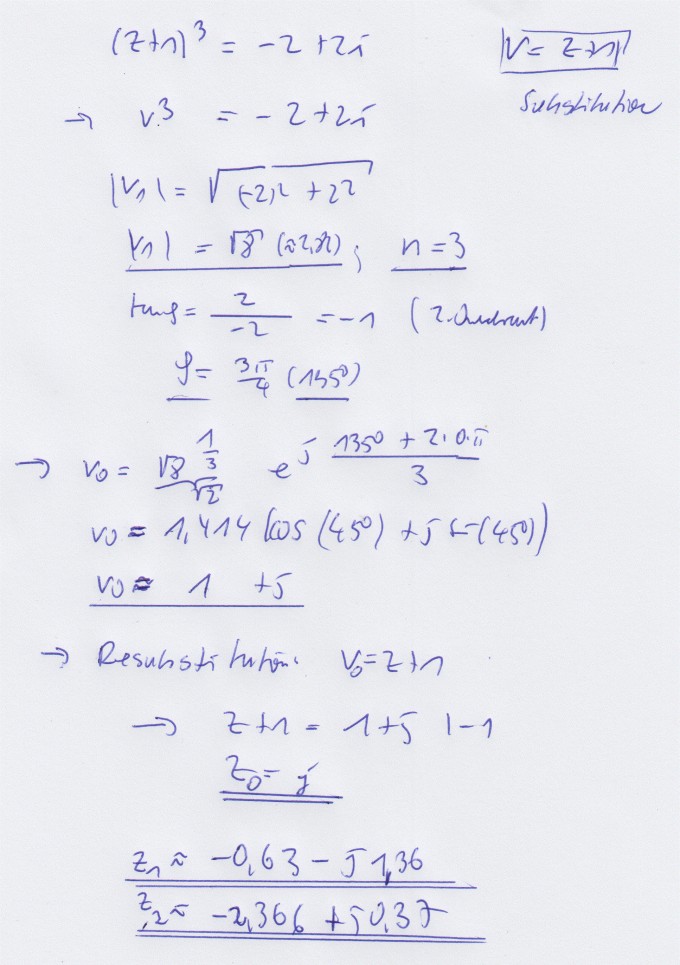 (z+1)³ = -2 + 2i |v = z+1|
Substitution
→ v³ = -2 + 2i
|v₁| = √((-2)² + 2²)
|v₁| = √8 (≈2,82) ; n = 3
tan φ = 2/-2 = -1 (2. Quadrant)
φ = 3π/4 (135°)
→ v₀ = √8^(1/3) e^(j (135° + 2·0·π)/3)
√2
v₀ = 1,414 (cos (45°) + j (45°))
v₀ ≈ 1 + j
→ Resubstitution: v₀ = z+1
→ z+1 = 1+j |-1
z₀ = j
z₁ ≈ -0,63 - j 1,36
z₂ ≈ -2,366 + j 0,37